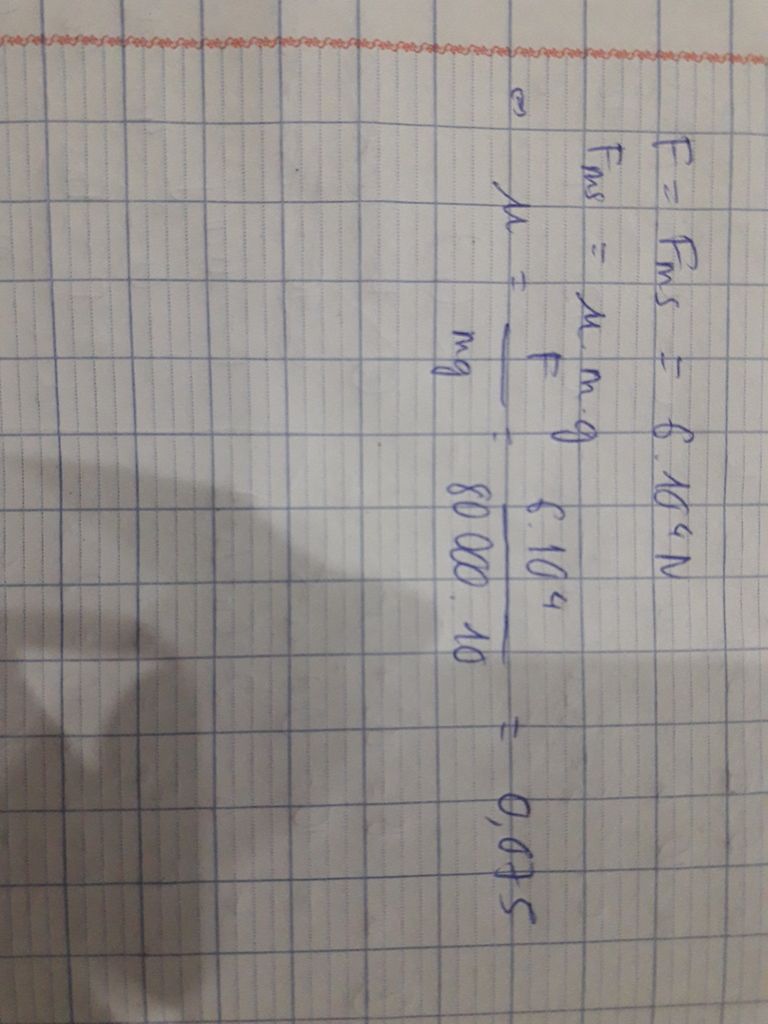 F = Fms = 6.10⁴ N
Fms = μ.m.g
μ = F / mg = 6.10⁴ / 80 000.10 = 0,075